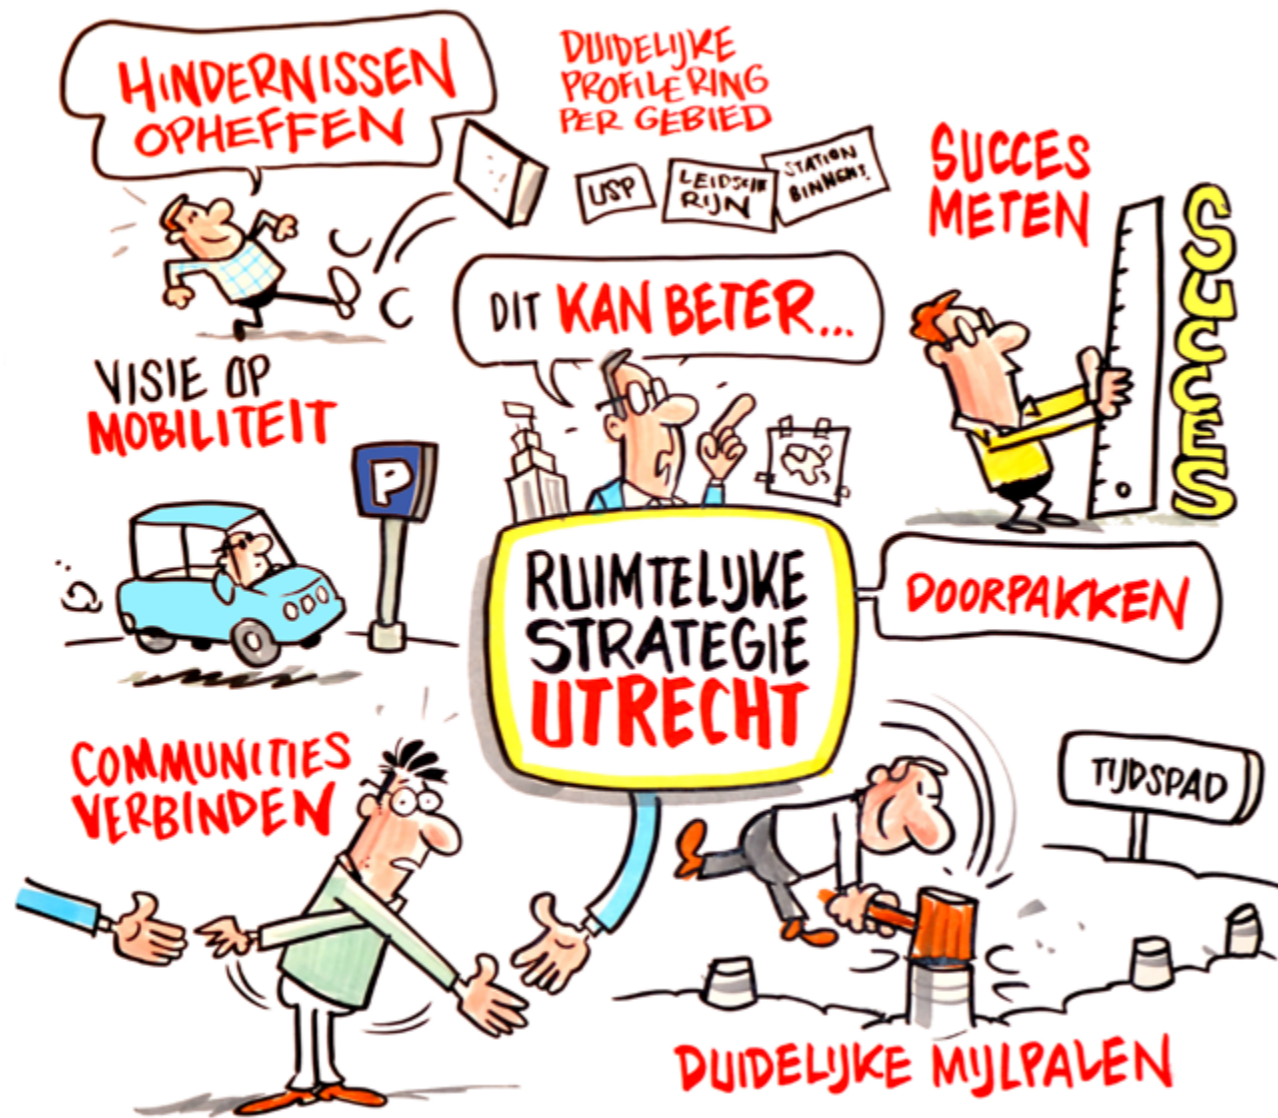 HINDERNISSEN
OPHEFFEN
DUIDELIJKE
PROFILERING
PER GEBIED
USP
LEIDSCHE
RIJN
STATION
SUCCES
METEN
SUCCES
DIT KAN BETER...
VISIE OP
MOBILITEIT
P
RUIMTELIJKE
STRATEGIE
UTRECHT
DOORPAKKEN
COMMUNITIES
VERBINDEN
TIJDSPAD
DUIDELIJKE MIJLPALEN